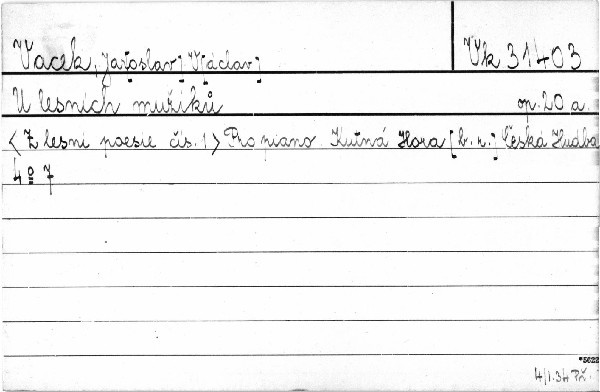 Vacek, Jaroslav] V[áclav] Vk 31403
U lesních muziků op. 20 a.
<Z lesní poesie čís. 1> Pro piano. Kutná Hora [b. r.] Česká Hudba
4º 7
*5622
4/1.34 Př.